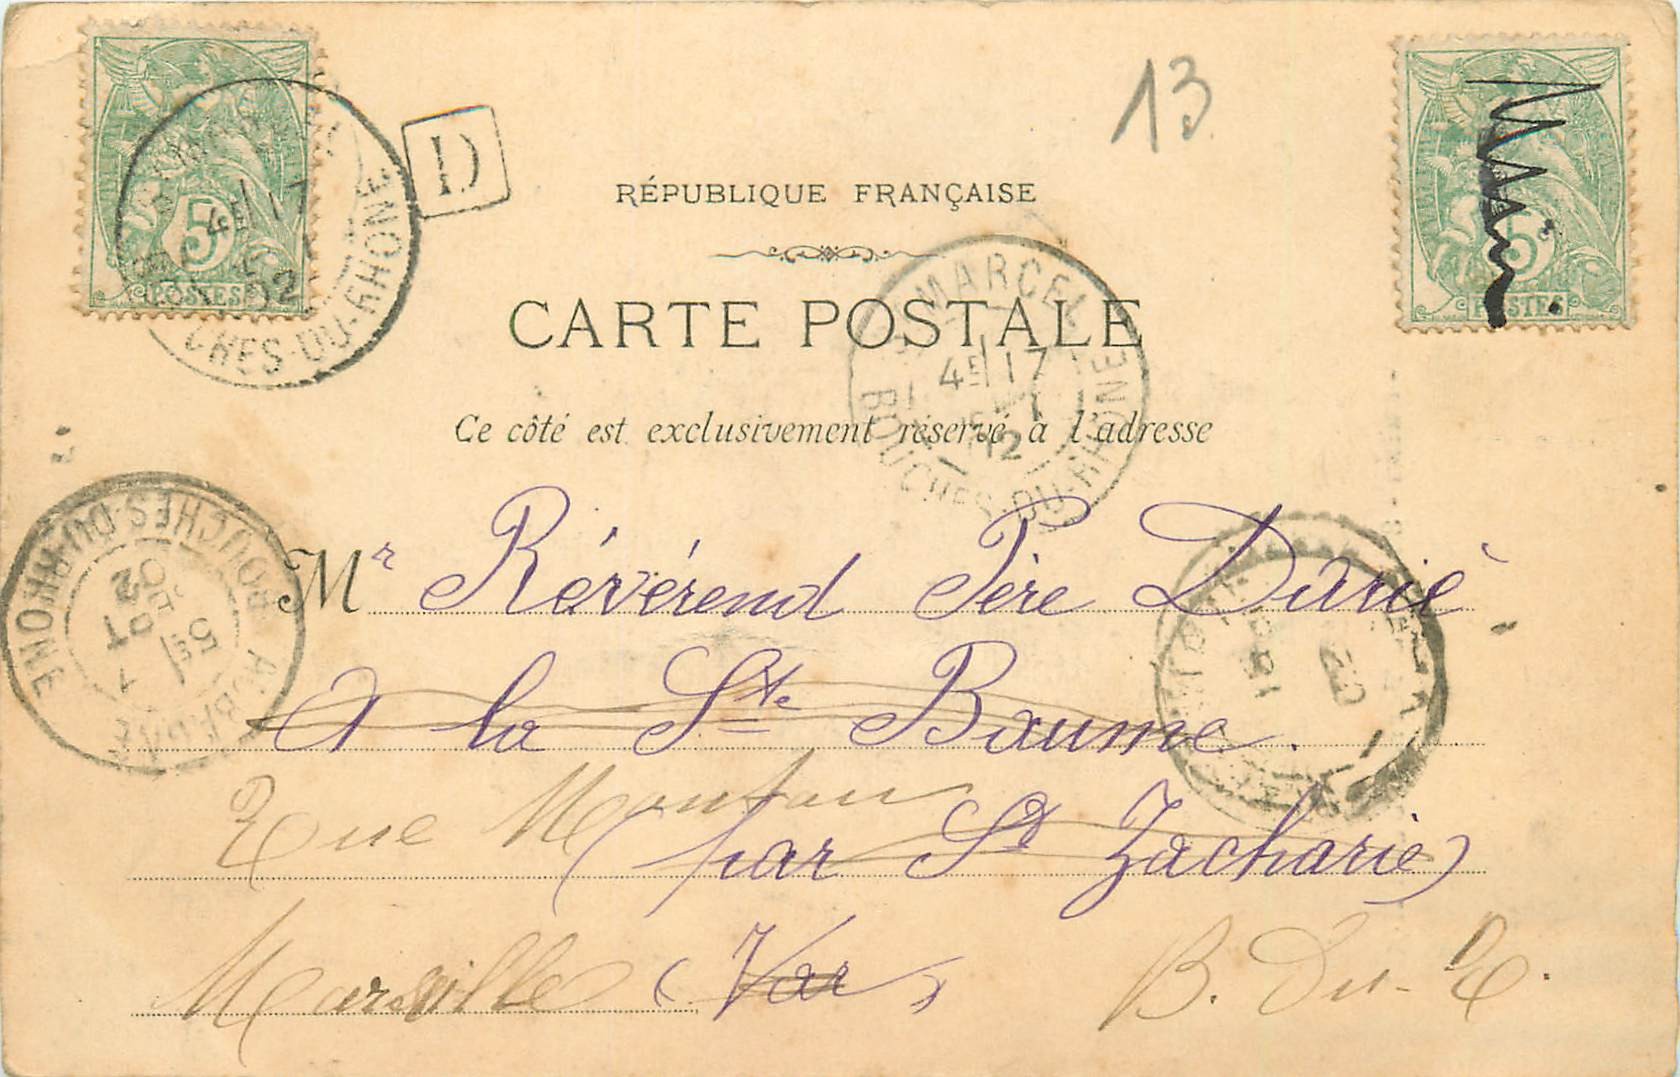 13
D
RÉPUBLIQUE FRANÇAISE
CARTE POSTALE
Ce côté est exclusivement réservé à l'adresse
5
POSTES
CHES-DU-RHONE
4E 17
02
5
POSTES
MARCEL
4E 17
BOUCHES-DU-RHONE
AUBAGNE
5E
7
SEPT
02
BOUCHES-DU-RHONE
Mr Révérend Père
à la Ste Baume.
Rue
(par St Zacharie)
Marseille (Var) B. Du-R.